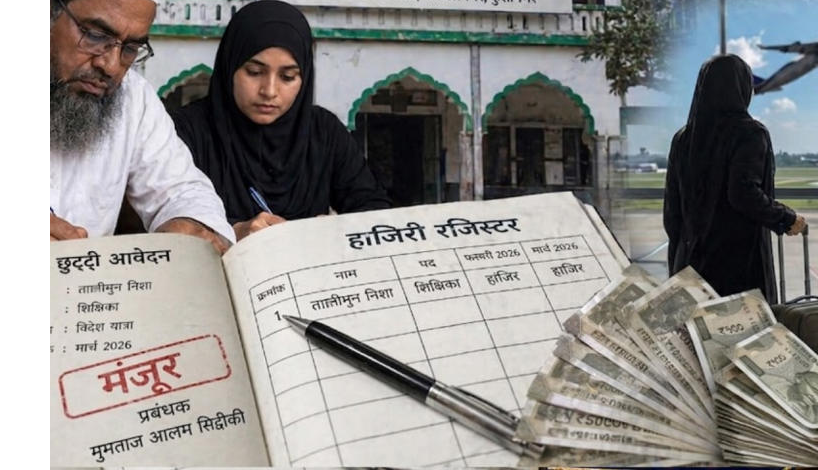 छुट्टी आवेदन
: तालीमुन निशा
: शिक्षिका
: विदेश यात्रा
: मार्च 2026
मंजूर
प्रबंधक
मुमताज आलम सिद्दीकी
हाजिरी रजिस्टर
क्रमांक नाम पद फरवरी 2026 मार्च 2026
1 तालीमुन निशा शिक्षिका हाजिर हाजिर
₹500